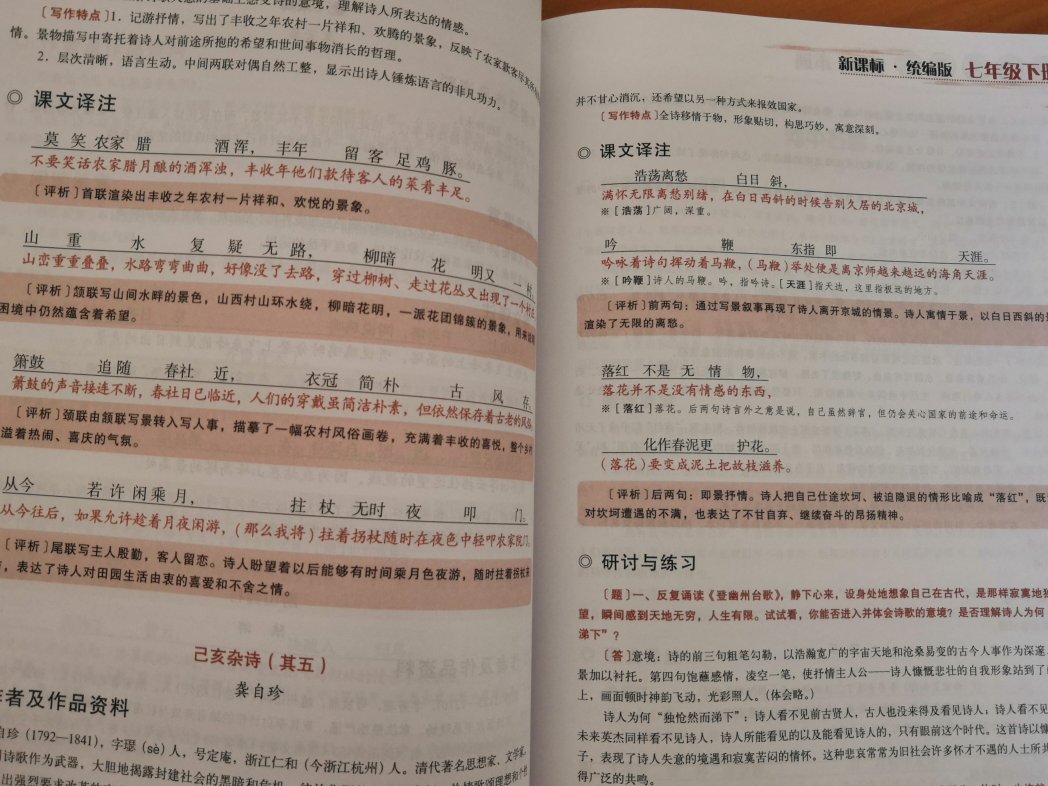 的意境，理解诗人所表达的情感。
［写作特点］1. 记游抒情，写出了丰收之年农村一片祥和、欢腾的景象，反映了农家款客
情。景物描写中寄托着诗人对前途所抱的希望和世间事物消长的哲理。
2. 层次清晰，语言生动。中间两联对偶自然工整，显示出诗人锤炼语言的非凡功力。
◎ 课文译注
莫 笑 农家 腊 酒浑， 丰年 留 客 足 鸡 豚。
不要笑话农家腊月酿的酒浑浊，丰收年他们款待客人的菜肴丰足。
［评析］首联渲染出丰收之年农村一片祥和、欢悦的景象。
山 重 水 复 疑 无 路， 柳暗 花 明又 一 村。
山峦重重叠叠，水路弯弯曲曲，好像没了去路，穿过柳树、走过花丛又出现了一个村庄
［评析］颔联写山间水畔的景色，山西村山环水绕，柳暗花明，一派花团锦簇的景象，用来
困境中仍然蕴含着希望。
箫鼓 追 随 春社 近， 衣冠 简 朴 古 风 存。
箫鼓的声音接连不断，春社日已临近，人们的穿戴虽简洁朴素，但依然保存着古老的风俗
［评析］颈联由颔联写景转入写人事，描摹了一幅农村风俗画卷，充满着丰收的喜悦，整个乡村
溢着热闹、喜庆的气氛。
从今 若 许 闲 乘 月， 拄 杖 无时 夜 叩 门。
从今往后，如果允许趁着月夜闲游，（那么我将）拄着拐杖随时在夜色中轻叩农家院门。
［评析］尾联写主人殷勤，客人留恋。诗人盼望着以后能够有时间乘月色夜游，随时拄着拐杖来
，表达了诗人对田园生活由衷的喜爱和不舍之情。
己亥杂诗（其五）
龚自珍
作者及作品资料
自珍（1792—1841），字璱（sè）人，号定庵，浙江仁和（今浙江杭州）人。清代著名思想家、文学家。
诗歌作为武器，大胆地揭露封建社会的黑暗和危机
新课标·统编版 七年级下册
并不甘心消沉，还希望以另一种方式来报效国家。
［写作特点］全诗移情于物，形象贴切，构思巧妙，寓意深刻。
◎ 课文译注
浩荡离愁 白日 斜，
满怀无限离愁别绪，在白日西斜的时候告别久居的北京城，
※［浩荡］广阔，深重。
吟 鞭 东指 即 天涯。
吟咏着诗句挥动着马鞭，（马鞭）举处便是离京师越来越远的海角天涯。
※［吟鞭］诗人的马鞭。吟，指吟诗。［天涯］指天边，这里指极远的地方。
［评析］前两句：通过写景叙事再现了诗人离开京城的情景。诗人寓情于景，以白日西斜的
渲染了无限的离愁。
落红 不是 无 情 物，
落花并不是没有情感的东西，
※［落红］落花。后两句诗言外之意是说，自己虽然辞官，但仍会关心国家的前途和命运。
化作春泥更 护花。
（落花）要变成泥土把故枝滋养。
［评析］后两句：即景抒情。诗人把自己仕途坎坷、被迫隐退的情形比喻成“落红”，既
对坎坷遭遇的不满，也表达了不甘自弃、继续奋斗的昂扬精神。
◎ 研讨与练习
［题］一、反复诵读《登幽州台歌》，静下心来，设身处地想象自己在古代，是那样寂寞地独
望，瞬间感到天地无穷，人生有限。试试看，你能否进入并体会诗歌的意境？是否理解诗人为何
涕下”？
［答］意境：诗的前三句粗笔勾勒，以浩瀚宽广的宇宙天地和沧桑易变的古今人事作为深邃
景加以衬托。第四句饱蘸感情，凌空一笔，使抒情主人公——诗人慷慨悲壮的自我形象站到了
上，画面顿时神韵飞动，光彩照人。（体会略。）
诗人为何“独怆然而涕下”：诗人看不见前古贤人，古人也没来得及看见诗人；诗人看不见
未来英杰同样看不见诗人，诗人所能看见的以及能看见诗人的，只有眼前这个时代。这首诗以慷
子，表现了诗人失意的境遇和寂寞苦闷的情怀。这种悲哀常常为旧社会许多怀才不遇的人士所共
得广泛的共鸣。